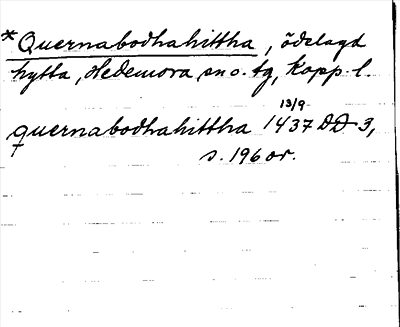 *Quernabodhahittha, ödelagd
hytta, Hedemora sn o. tg, Kopp. l.
13/9
quernabodhahittha 1437 DD 3,
s. 196 or.